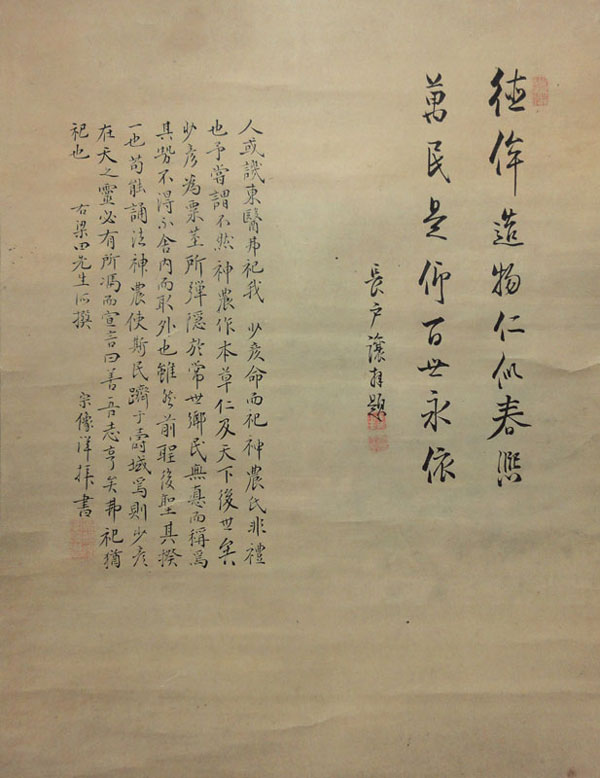 徳侔造物仁似春熙
萬民是仰百世永依
長戸讓拜題
人或譏東醫弗祀我　少彦命而祀神農氏非禮
也予嘗謂不然神農作本草仁及天下後世矣
少彦為粟莖所彈隱於常世鄉民無悳而稱焉
其勢不得不舍内而取外也雖然前聖後聖其揆
一也苟能誦法神農使斯民躋于壽域焉則少彦
在天之靈必有所馮而宣言曰善吾志亨矣弗祀猶
祀也　右梁田先生所撰　宗像洋拜書